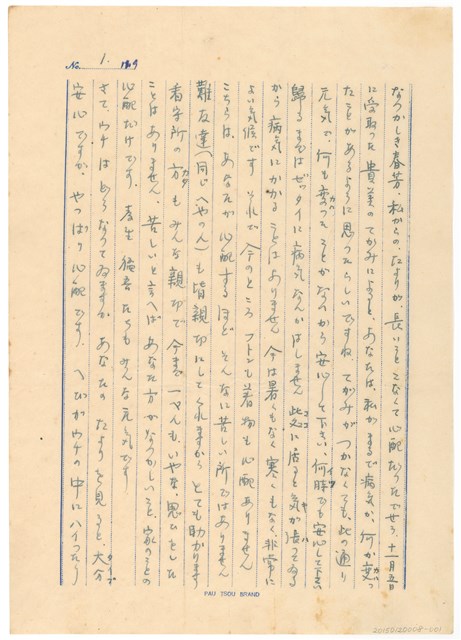 No. 1. 1809
なつかしき春芳、私からの、たよりが、長いことこなくて心配だつたでせう、十一月五日
に受取つた貴美のてがみによると、あなたは、私がまるで病気か、何か変つ
たことがあるように思つたらしいですね、てがみが つかなくても、此の通り
元気で、何も変つたことがないから安心して下さい、何時でも安心して下さい
歸るまではゼツタイに病気なんかはしません 此処に居ると気が張つてゐる
から 病気にかかることはありません 今は暑くもなく寒くもなく、非常に
よい気候です それで 今のところ フトンも着物も心配ありません
こちらは、あなたが心配するほど そんなに苦しい所ではありません
難友達(同じへやの人)も皆親切にしてくれますから とても助かります
看守所の方もみんな親切で 今まで 一ぺんも、いやな、思ひをした
ことはありません、苦しいと言へば あなた方がなつかしいこと、家のことの
心配だけです、孝生 猛吾たちもみんな元気です
さて、ウチは あらなつてゐますか あなたの たよりを見ると、大分
安心ですが、やつぱり心配です、へびがウチの中にハイツたり
PAU TSOU BRAND
20150120008-001